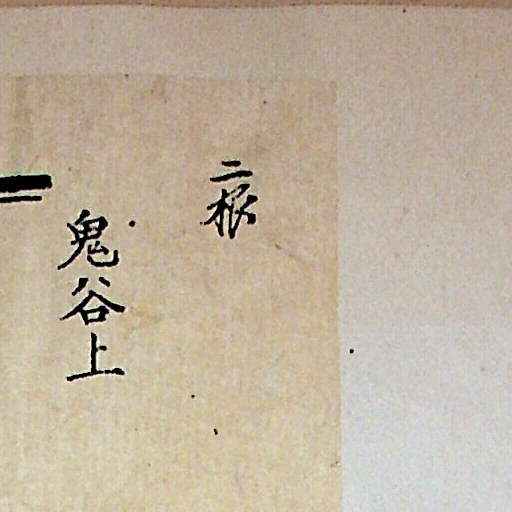 二根
鬼谷上